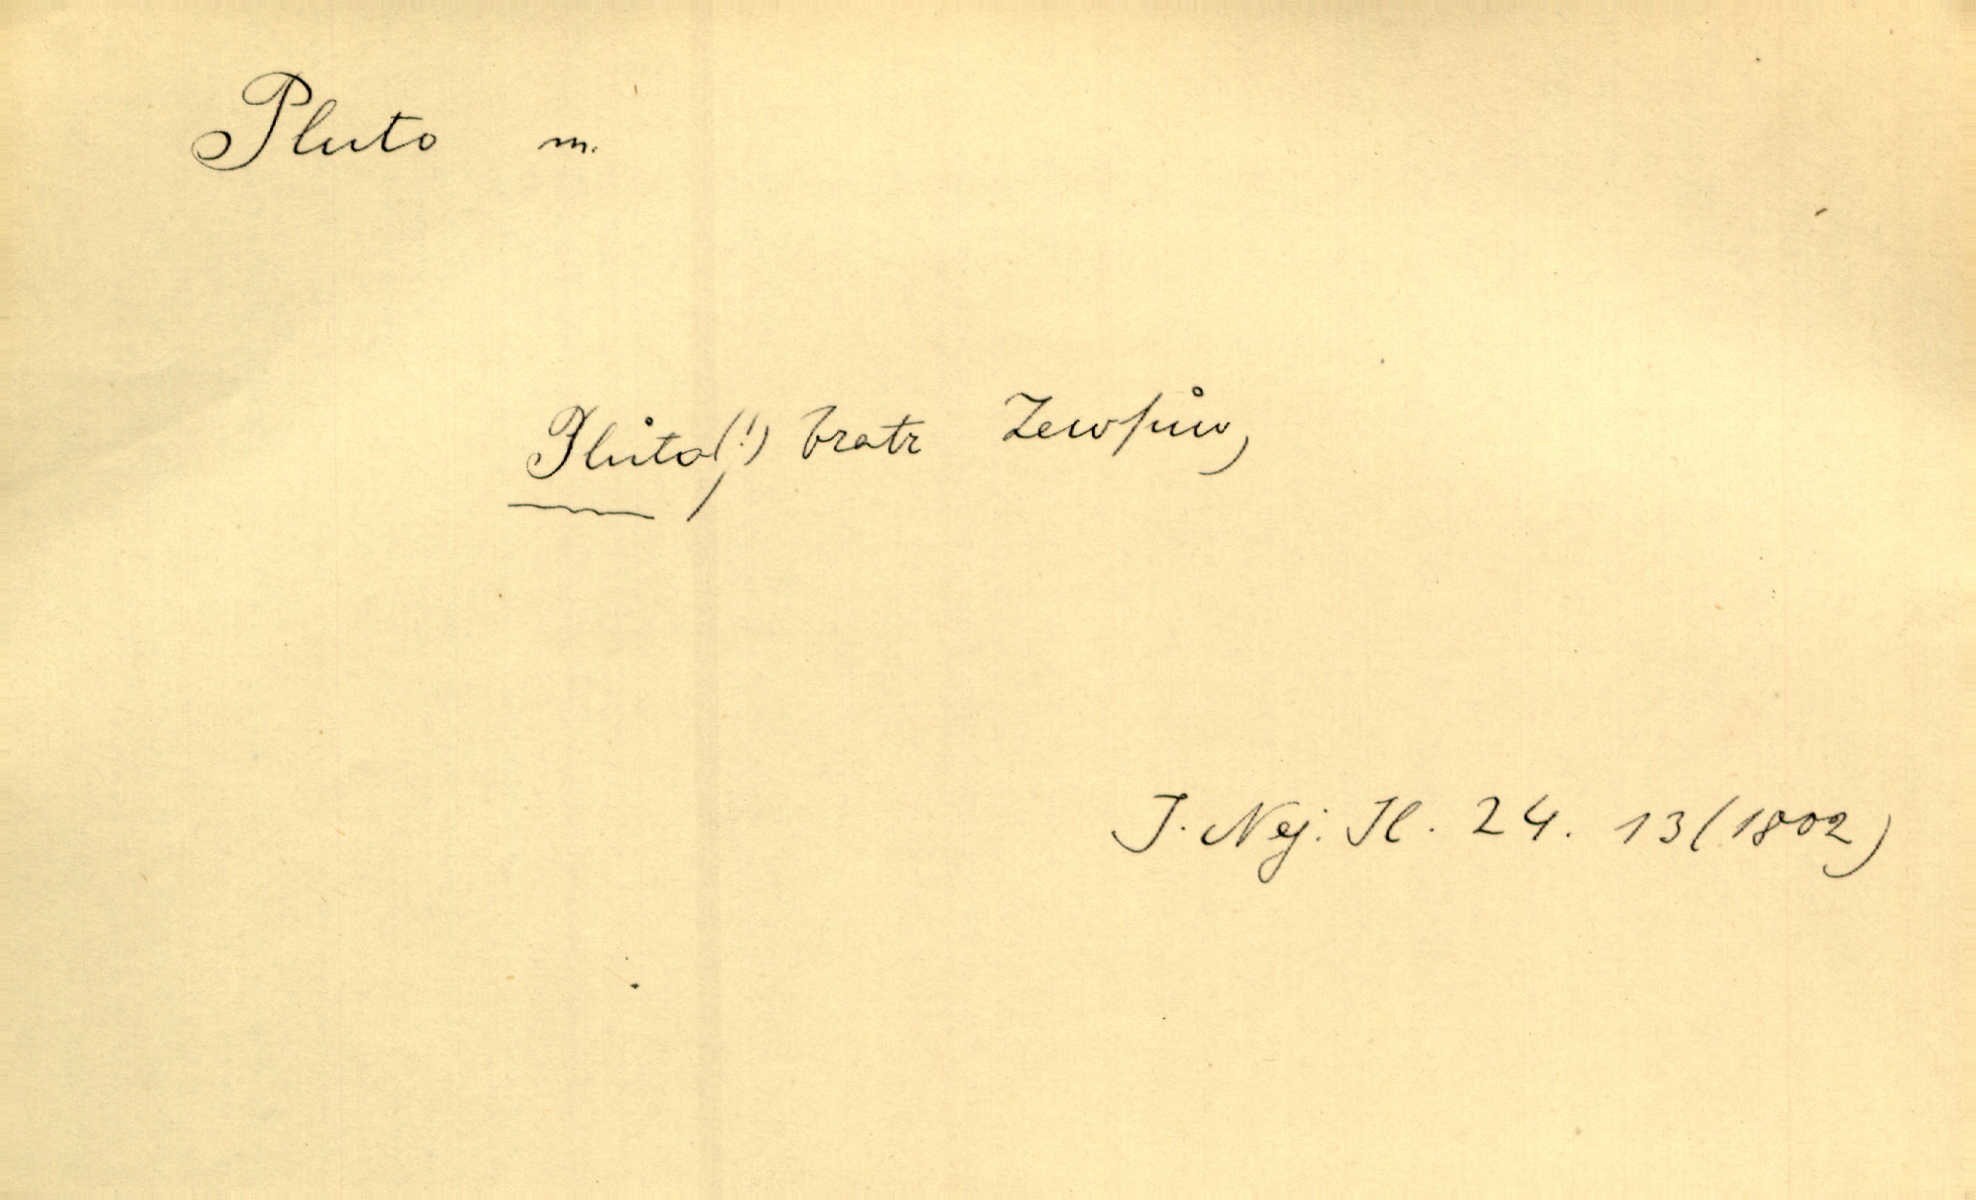 Pluto m.
Plůto(!), bratr Zewsůw,
J. Nej. Il. 24. 13 (1802)